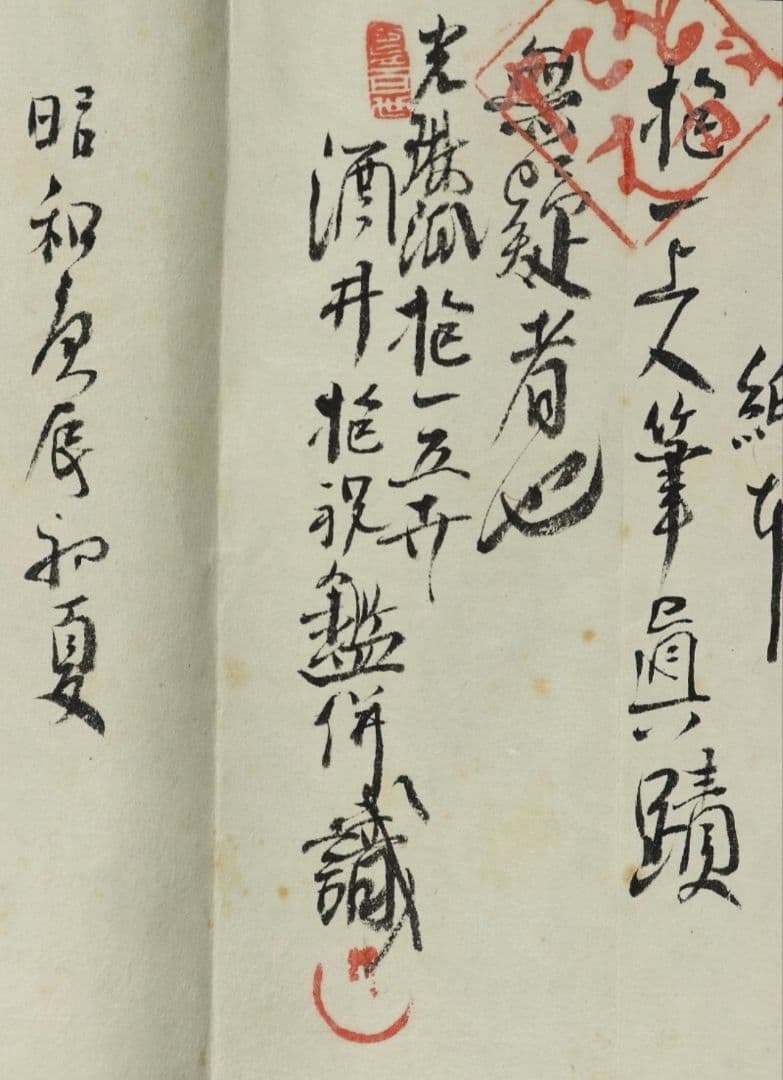 紙本
抱一上人筆眞蹟
無疑者也
光琳派抱一五世
酒井抱祝鑑併識
昭和庚辰初夏